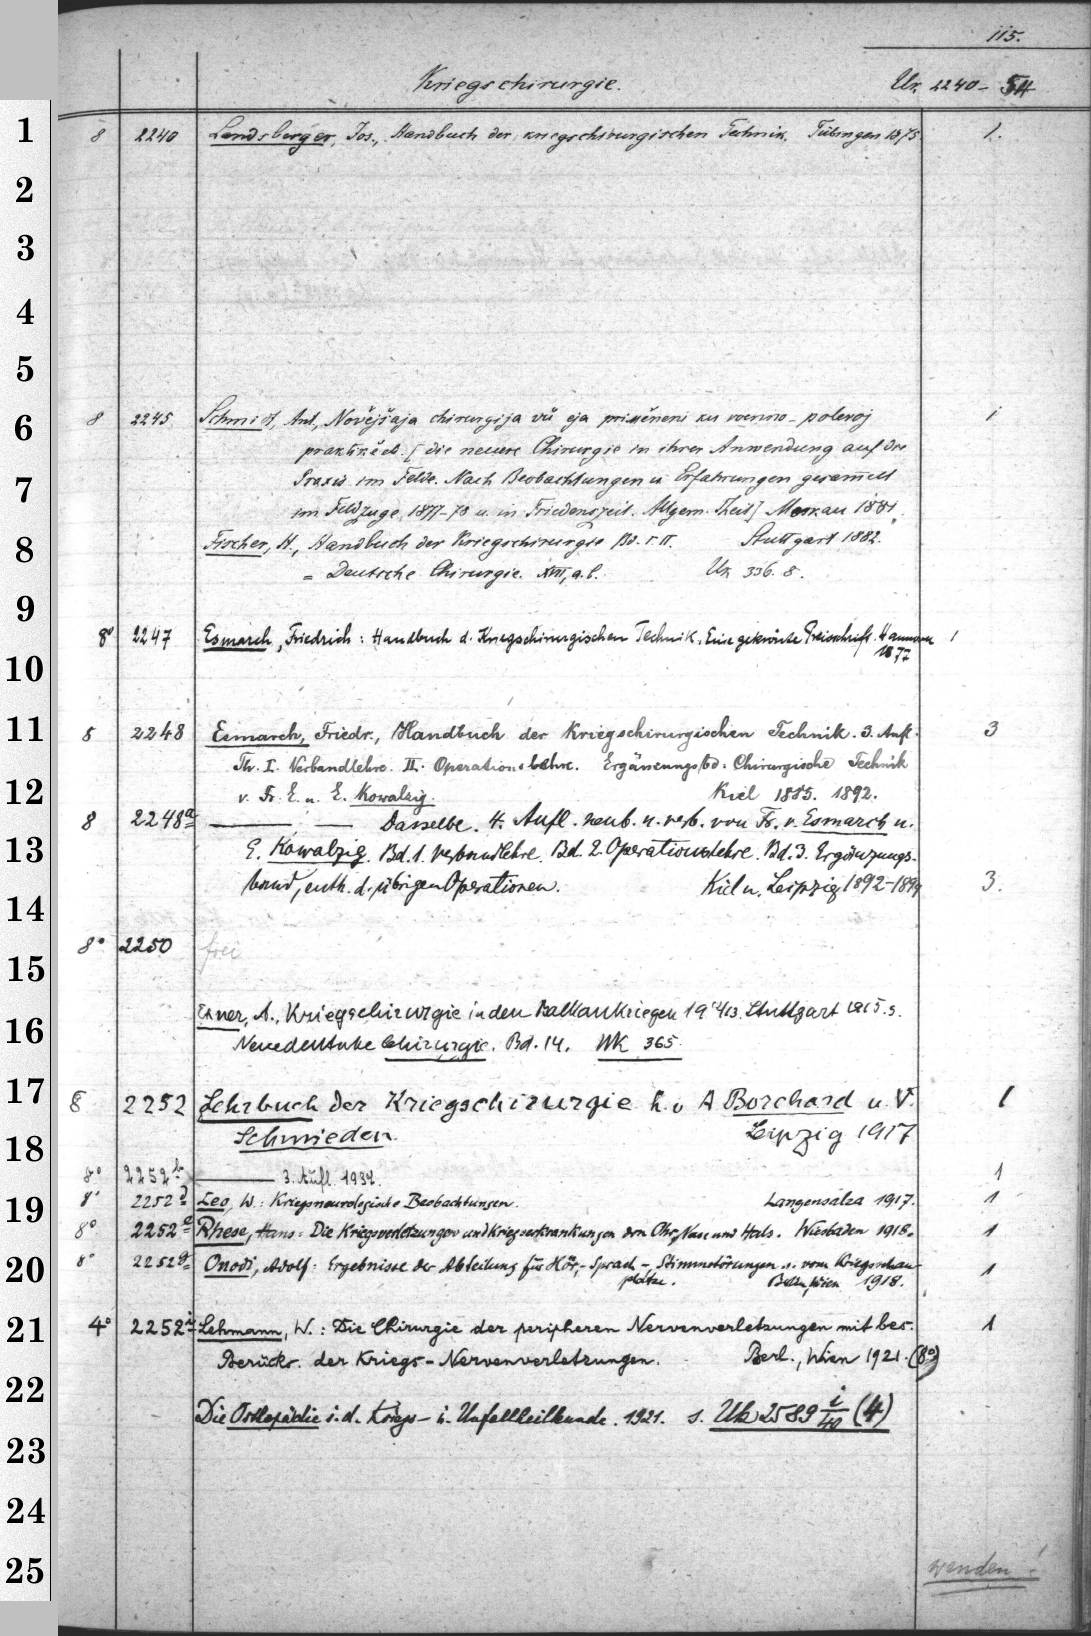 115.
Kriegschirurgie. Uk 2240-54
1
8 2240 Landsberger, Jos., Handbuch der kriegschirurgischen Technik. Tübingen 1875 1.
2
3
4
5
6
8 2245 Schmidt, Ant, Novějšaja chirurgija vŭ eja priměneni ku voenno-polevoj 1
praktikěch. [die neuere Chirurgie in ihrer Anwendung auf die
7
Praxis im Felde. Nach Beobachtungen u Erfahrungen gesam̄elt
im Feldzuge 1877-78 u. in Friedenszeit. Allgem. Theil] Moskau 1881.
8
Fischer, H., Handbuch der Kriegschirurgie Bd. I. II. Stuttgart 1882.
= Deutsche Chirurgie. XVII, a.b. Uk 336. 8.
9
8° 2247 Esmarch, Friedrich: Handbuch d. Kriegschirurgischen Technik. Eine gekrönte Preisschrift. Hannover 1
1877
10
11
8 2248 Esmarch, Friedr., Handbuch der Kriegschirurgischen Technik. 3. Aufl. 3
Th. I. Verbandlehre. II. Operationslehre. Ergänzungsbd: Chirurgische Technik
12
v. Fr. E. u. E. Kowalzig. Kiel 1885. 1892.
8 2248a ——— — Dasselbe. 4. Aufl. neub. u. verb. von Fr. v. Esmarch u.
13
E. Kowalzig. Bd. 1. Verbandlehre. Bd. 2. Operationslehre. Bd. 3. Ergänzungs-
band, enth. d. übrigen Operationen. Kiel u. Leipzig 1892-1899 3.
14
8° 2250 frei
15
Exner, A., Kriegschirurgie in den Balkankriegen 1912/13. Stuttgart 1915. s.
16
Neue deutsche Chirurgie. Bd. 14. Uk 365.
17
8 2252 Lehrbuch der Kriegschirurgie h. v A Borchard u. V. 1
18
Schmieden. Leipzig 1917
8° 2252b ——— 3. Aufl. 1937. 1
19
8° 2252d Leo, W.: Kriegsneurologische Beobachtungen. Langensalza 1917. 1
8° 2252e Rhese, Hans: Die Kriegsverletzungen und Kriegserkrankungen von Ohr, Nase und Hals. Wiesbaden 1918. 1
20
8° 2252g Onodi, Adolf: Ergebnisse der Abteilung für Hör-, Sprach-, Stimmstörungen u. vom Kriegsschau- 1
plätze. Berlin, Wien 1918.
21
4° 2252i Lehmann, W.: Die Chirurgie der peripheren Nervenverletzungen mit bes. 1
Berücks. der Kriegs-Nervenverletzungen. Berl., Wien 1921. (8°)
22
Die Orthopädie i. d. Kriegs- u. Unfallheilkunde. 1921. s. Uk 2589 i/40 (4)
23
24
25
wenden!